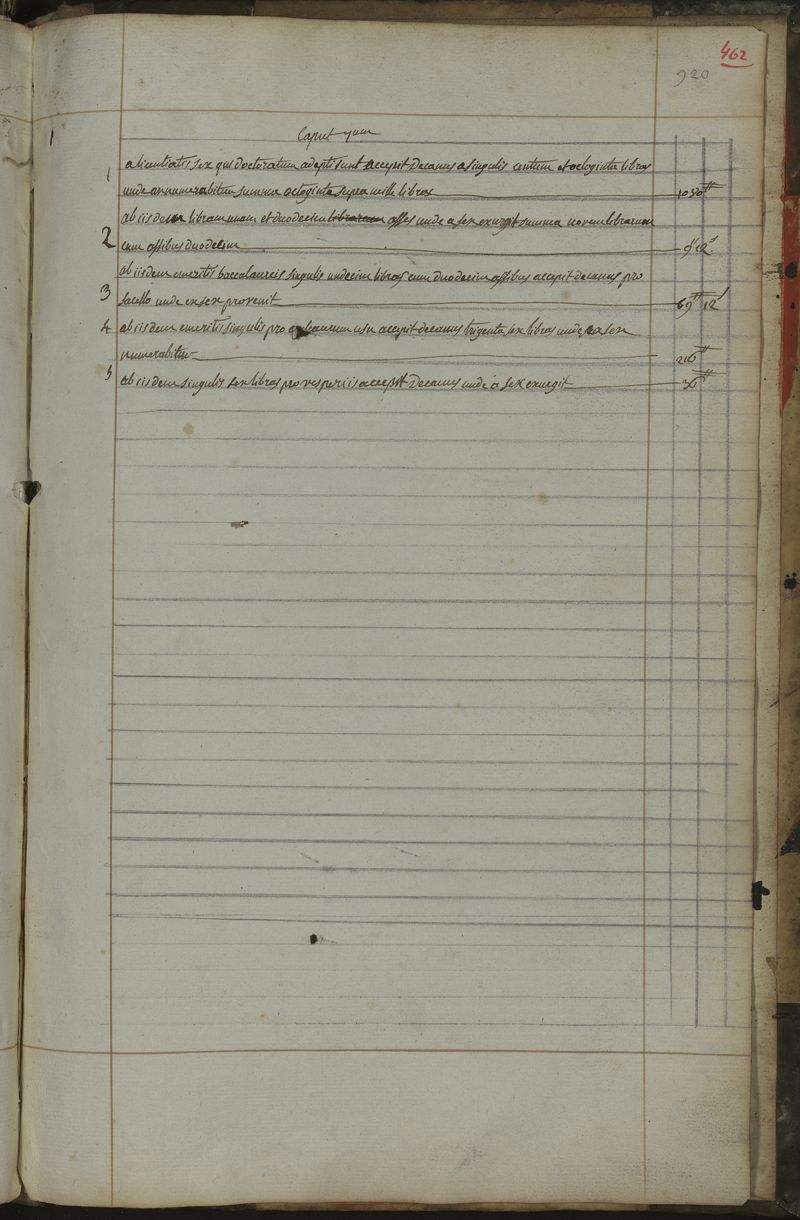 462
920
Caput 7um
1 a licentiatis sex qui doctoratum adepti sunt accepit Decanus a singulis centum et octoginta libras
unde annumerabitur summa octoginta supra mille libras 1080 ͭͭ
ab iisdem libram unam et duodecim librarum asses unde a sex exurgit summa novem librarum
2 cum assibus duodecim 9 12 s
ab iisdem emeritis baccalaureis singulis undecim libras cum duodecim assibus accepit decanus pro
3 sacello unde ex sex provenit 69 12 s
4 ab iisdem emeritis singulis pro usu accepit decanus trigenta sex libras unde ex sex
numerabitur 216
5 ab iisdem singulis sex libras pro vesperiis accepit Decanus unde a sex exurgit 36